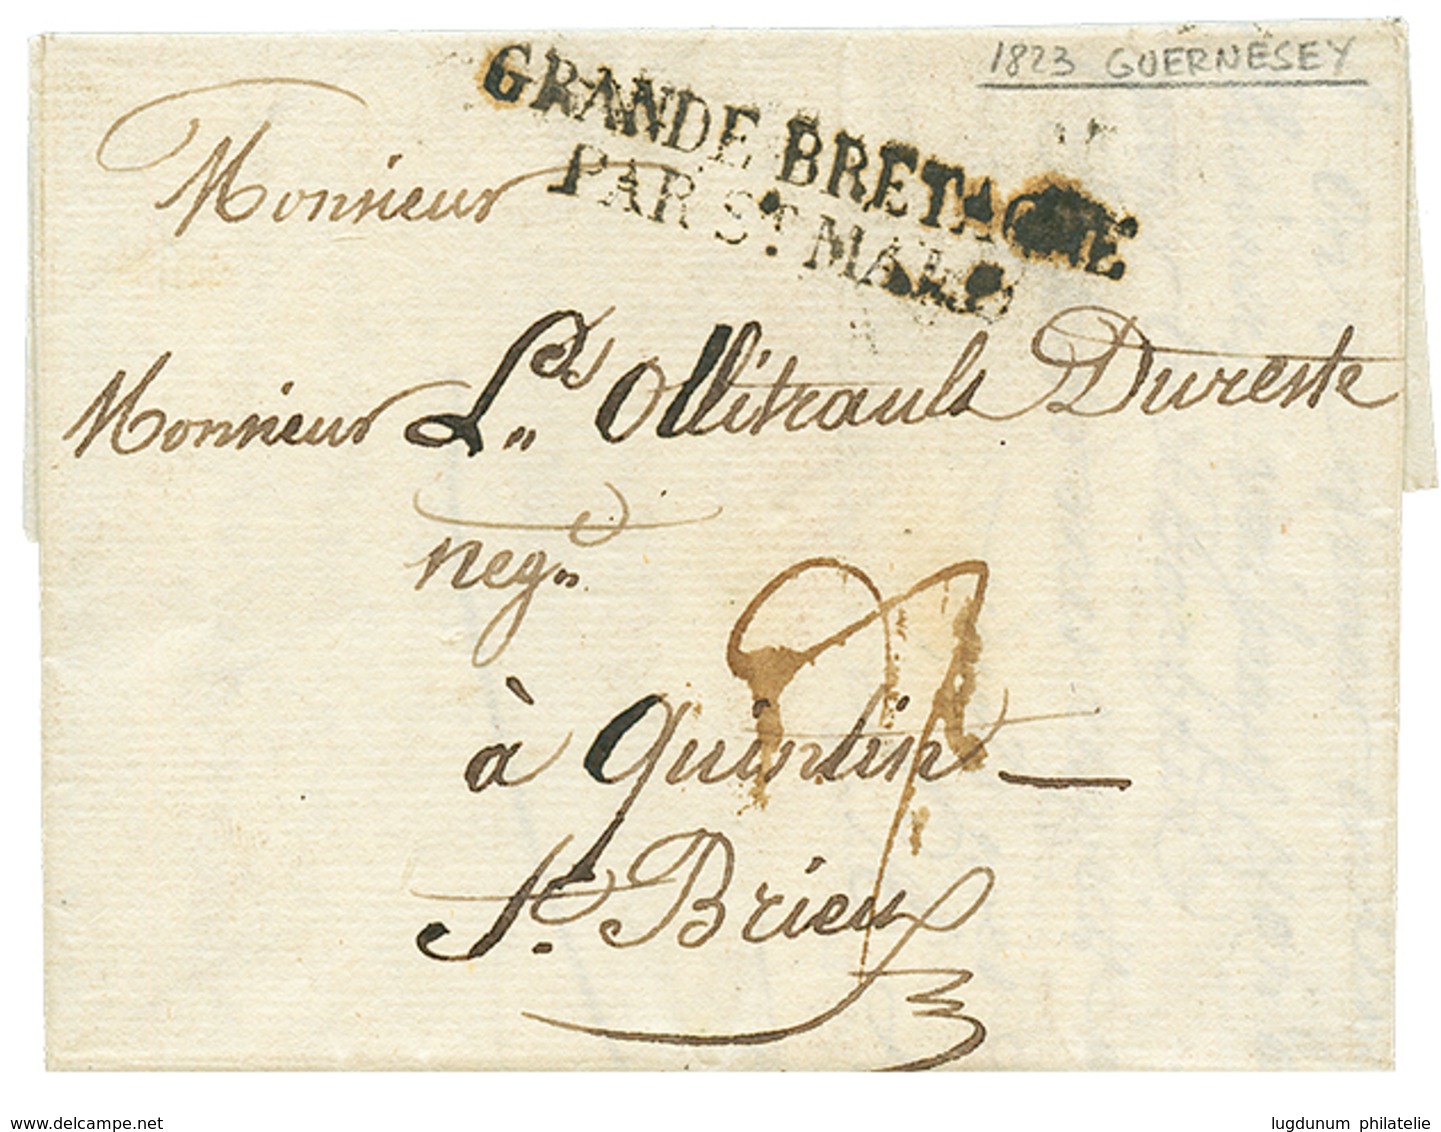 1823 GUERNESEY
GRANDE BRETAGNE
PAR ST. MALO
Monsieur
Monsieur Ls. Ollitrault Dureste
neg.
à Quintin
St. Brieux
www.delcampe.net
lugdunum philatelie